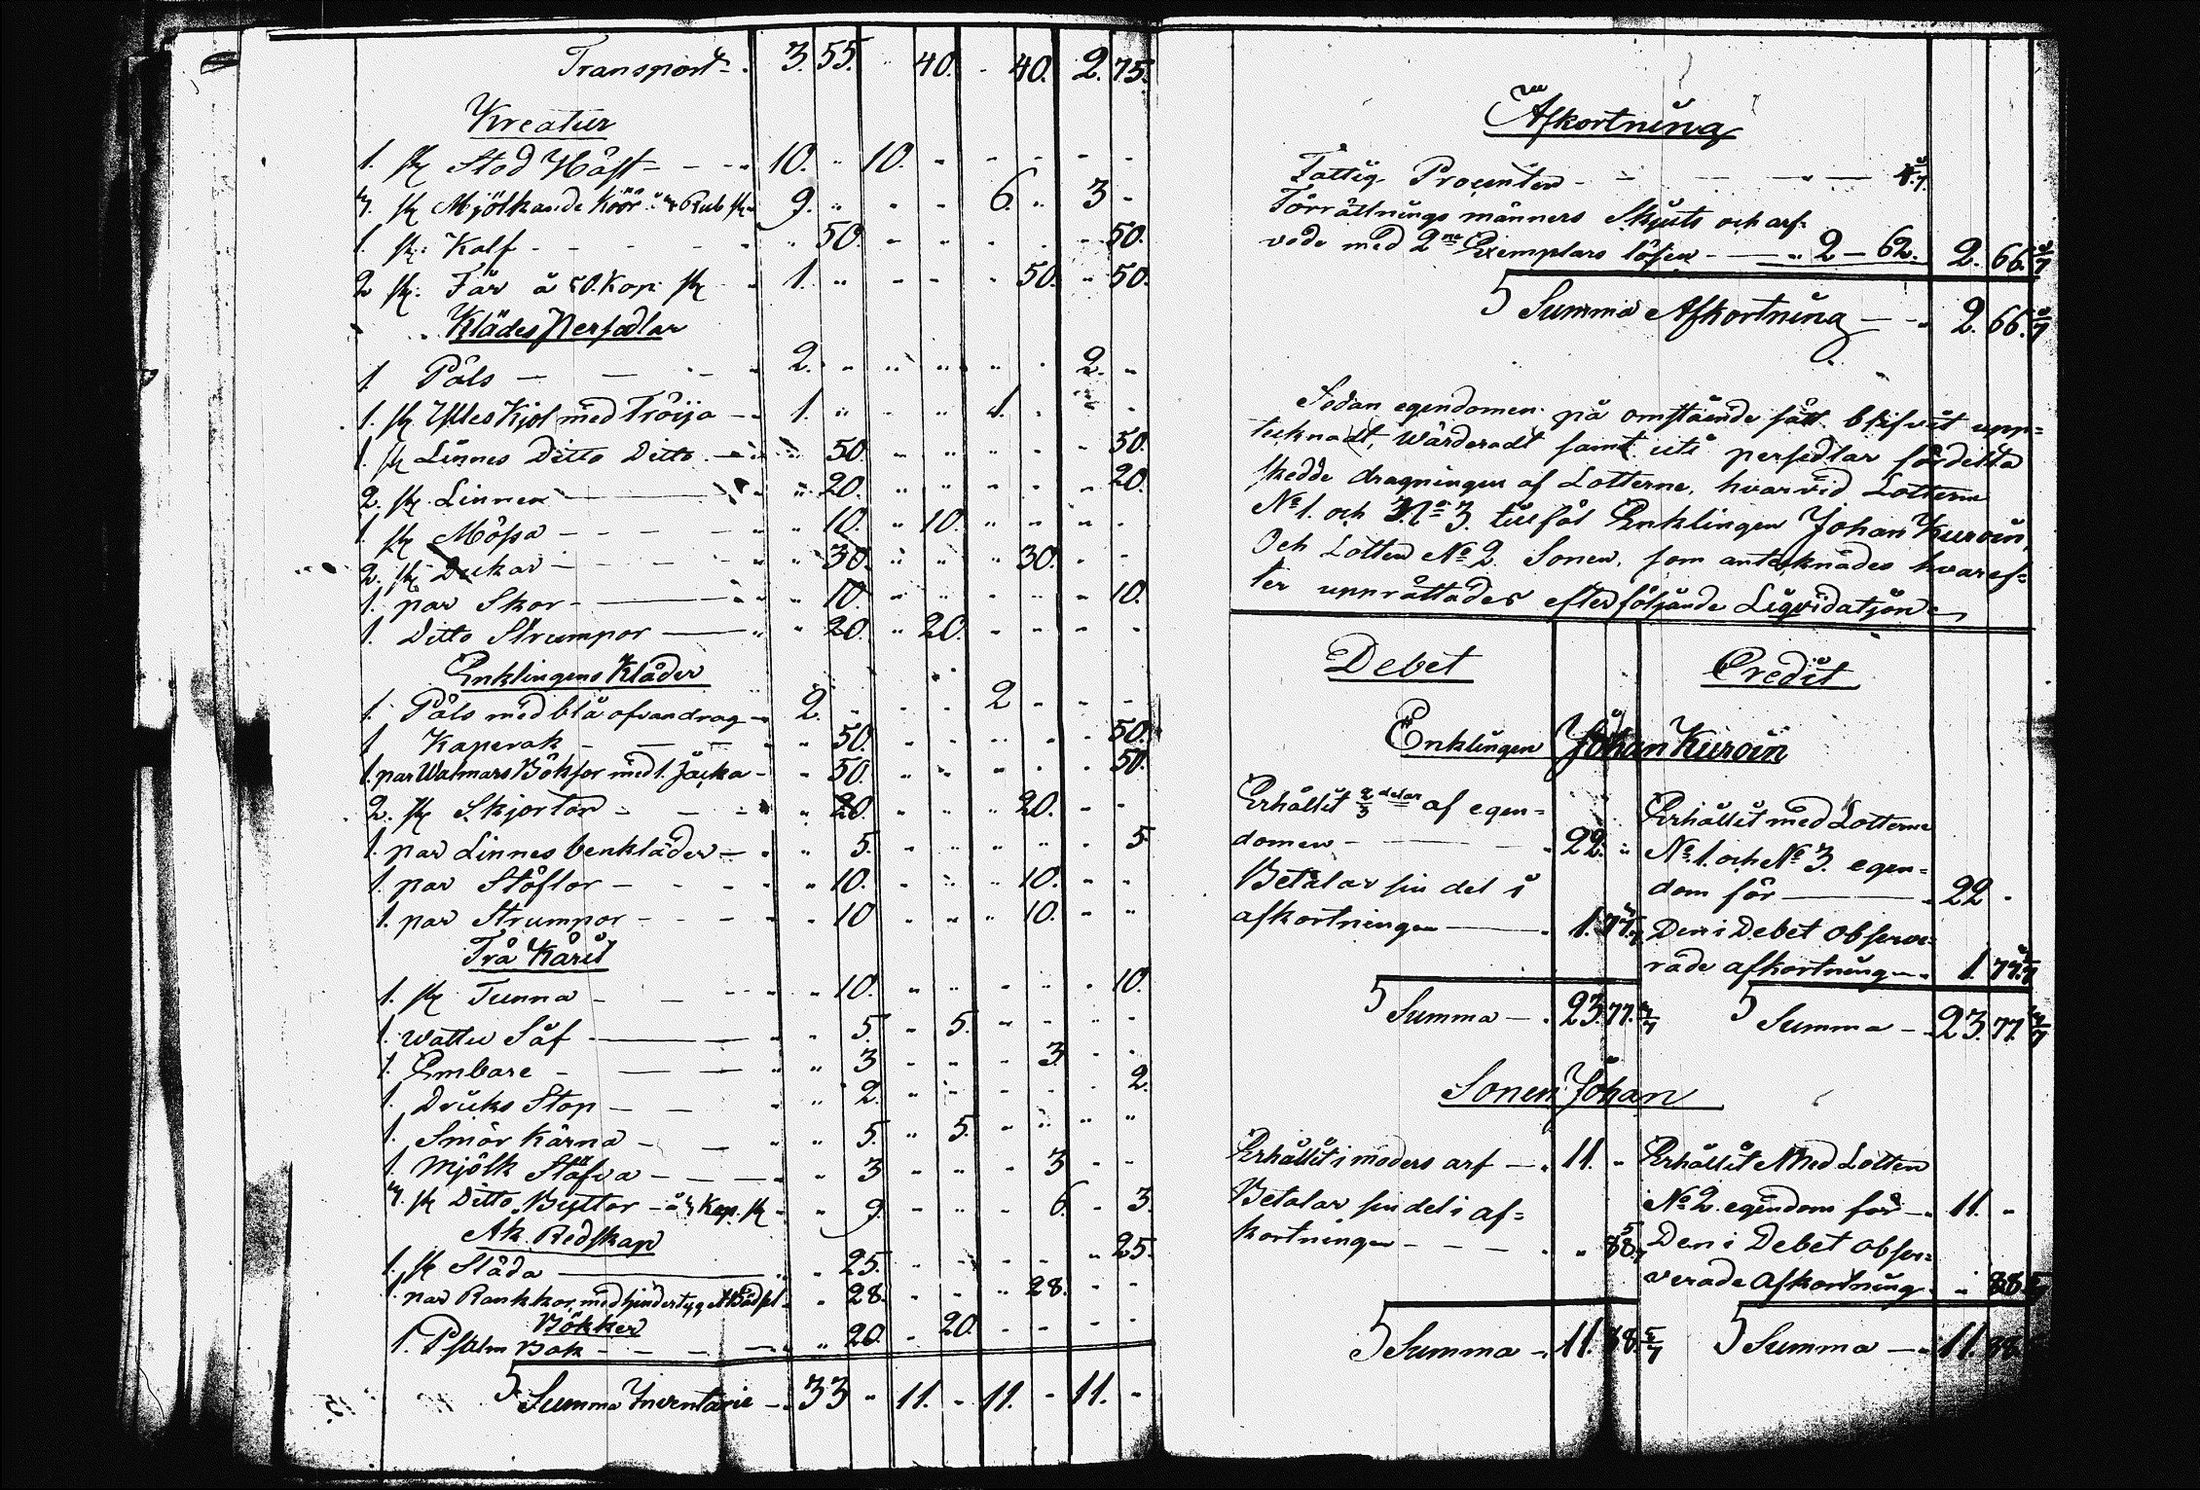 Transport - 3. 55. " 40. - 40. 2. 75.
Kreatur
1. st Stod Häst - - - 10. " 10. - - - - -
3. st Mjölkande Köör à 3 Rub st 9. " - - 6. " 3 -
1. st: Kalf - - - - - " 50. - - - - " 50.
2 st: Får à 50. Kop: st - 1. " - - - 50. " 50.
Klädes Persedlar
1 Päls - - - - 2. " " " " - 2. -
1. st Ylles Kjol med Tröija - 1. " - " 1. - " -
1. st Linnes Ditto Ditto - " 50. - " " - - 50.
2. st Linnen - " 20. " " " - - 20.
1. st Mössa - - - - " 10. " 10. " " - -
2. st Dukar - - - - " 30. " " " 30. - -
1. par Skor - - " 10. - " - " - 10.
1. Ditto Strumpor - " 20. " 20. - - - -
Enklingens Kläder
1. Päls med blå ofvandrag - 2. - - - 2 - - -
1 Kaperak - - - - " 50. - - - - - 50.
1. par Walmars Böksor med 1. Jacka - - 50. - " - - - 50.
2. st Skjortor - - - " 20. - - " 20. - -
1. par Linnes benkläder - - " 5. - - " " - 5.
1. par Stöflor - - - - " 10. - " - 10. - -
1. par Strumpor - - - - " 10 - " " 10. - "
Trä Käril
1. st Tunna - - - - - 10. - " - - - 10.
1. Wattu Såf - - - 5. - 5. - - - -
1. Embare - - - - " 3 - - - 3. - -
1. Dricks Stop - - - " 2. - - - - - 2.
1. Smör Kärna - - - " 5. " 5. - " " "
1. Mjölk Stäfva - - - - " 3 - - - 3 - -
3. st Ditto Byttor - à 3 Kop. st - " 9. - - - 6. - 3.
Åk Redskap
1. st Släda - " 25. - - - - " 25.
1. par Rankkor, med hindertyg - " 28. - - " 28. - -
Bökker
1. Psalm Bok - - - - " 20. - 20. - - - -
Summa Inventarie - 33 - 11. - 11. - 11. -
Afkortning
Fattig Procenten - - - - - 4 2/7
Förrättnings männers Skjuts och arf-
vode med 2ne Exemplars lösen - " 2 - 62. 2. 66. 2/7
Summa Afkortning - - 2. 66. 2/7
Sedan egendomen på omstående sätt blifvit upp=
tecknadt, Wärderadt samt uti persedlar fördelta
skedde dragningen af Lotterne, hvarvid Lotterne
No 1. och No 3. tillföl Enklingen Johan Kuroin,
Och Lotten No 2. Sonen, som antecknades hvaref=
ter upprättades efterföljande Liqvidatjon
Debet Credit
Enklingen Johan Kuroin
Erhållit 2/3 delar af egen=
domen - 22. "
Betalar sin del i
afkortningen - 1. 77. 3/7
Summa - 23. 77. 3/7
Erhållit med Lotterne
No 1. och No 3. egen=
dom för - 22 -
Den i Debet obser=
rade afkortning - 1 77. 3/7
Summa - 23. 77. 3/7
Sonen Johan
Erhållit i moders arf - 11. -
Betalar sin del i af=
kortningen - - - - " 88. 6/7
Summa - 11. 88. 6/7
Erhållit Med Lotten
No 2. egendom för - 11. -
Den i Debet obser=
verade Afkortning - " 88.
Summa - 11. 88.